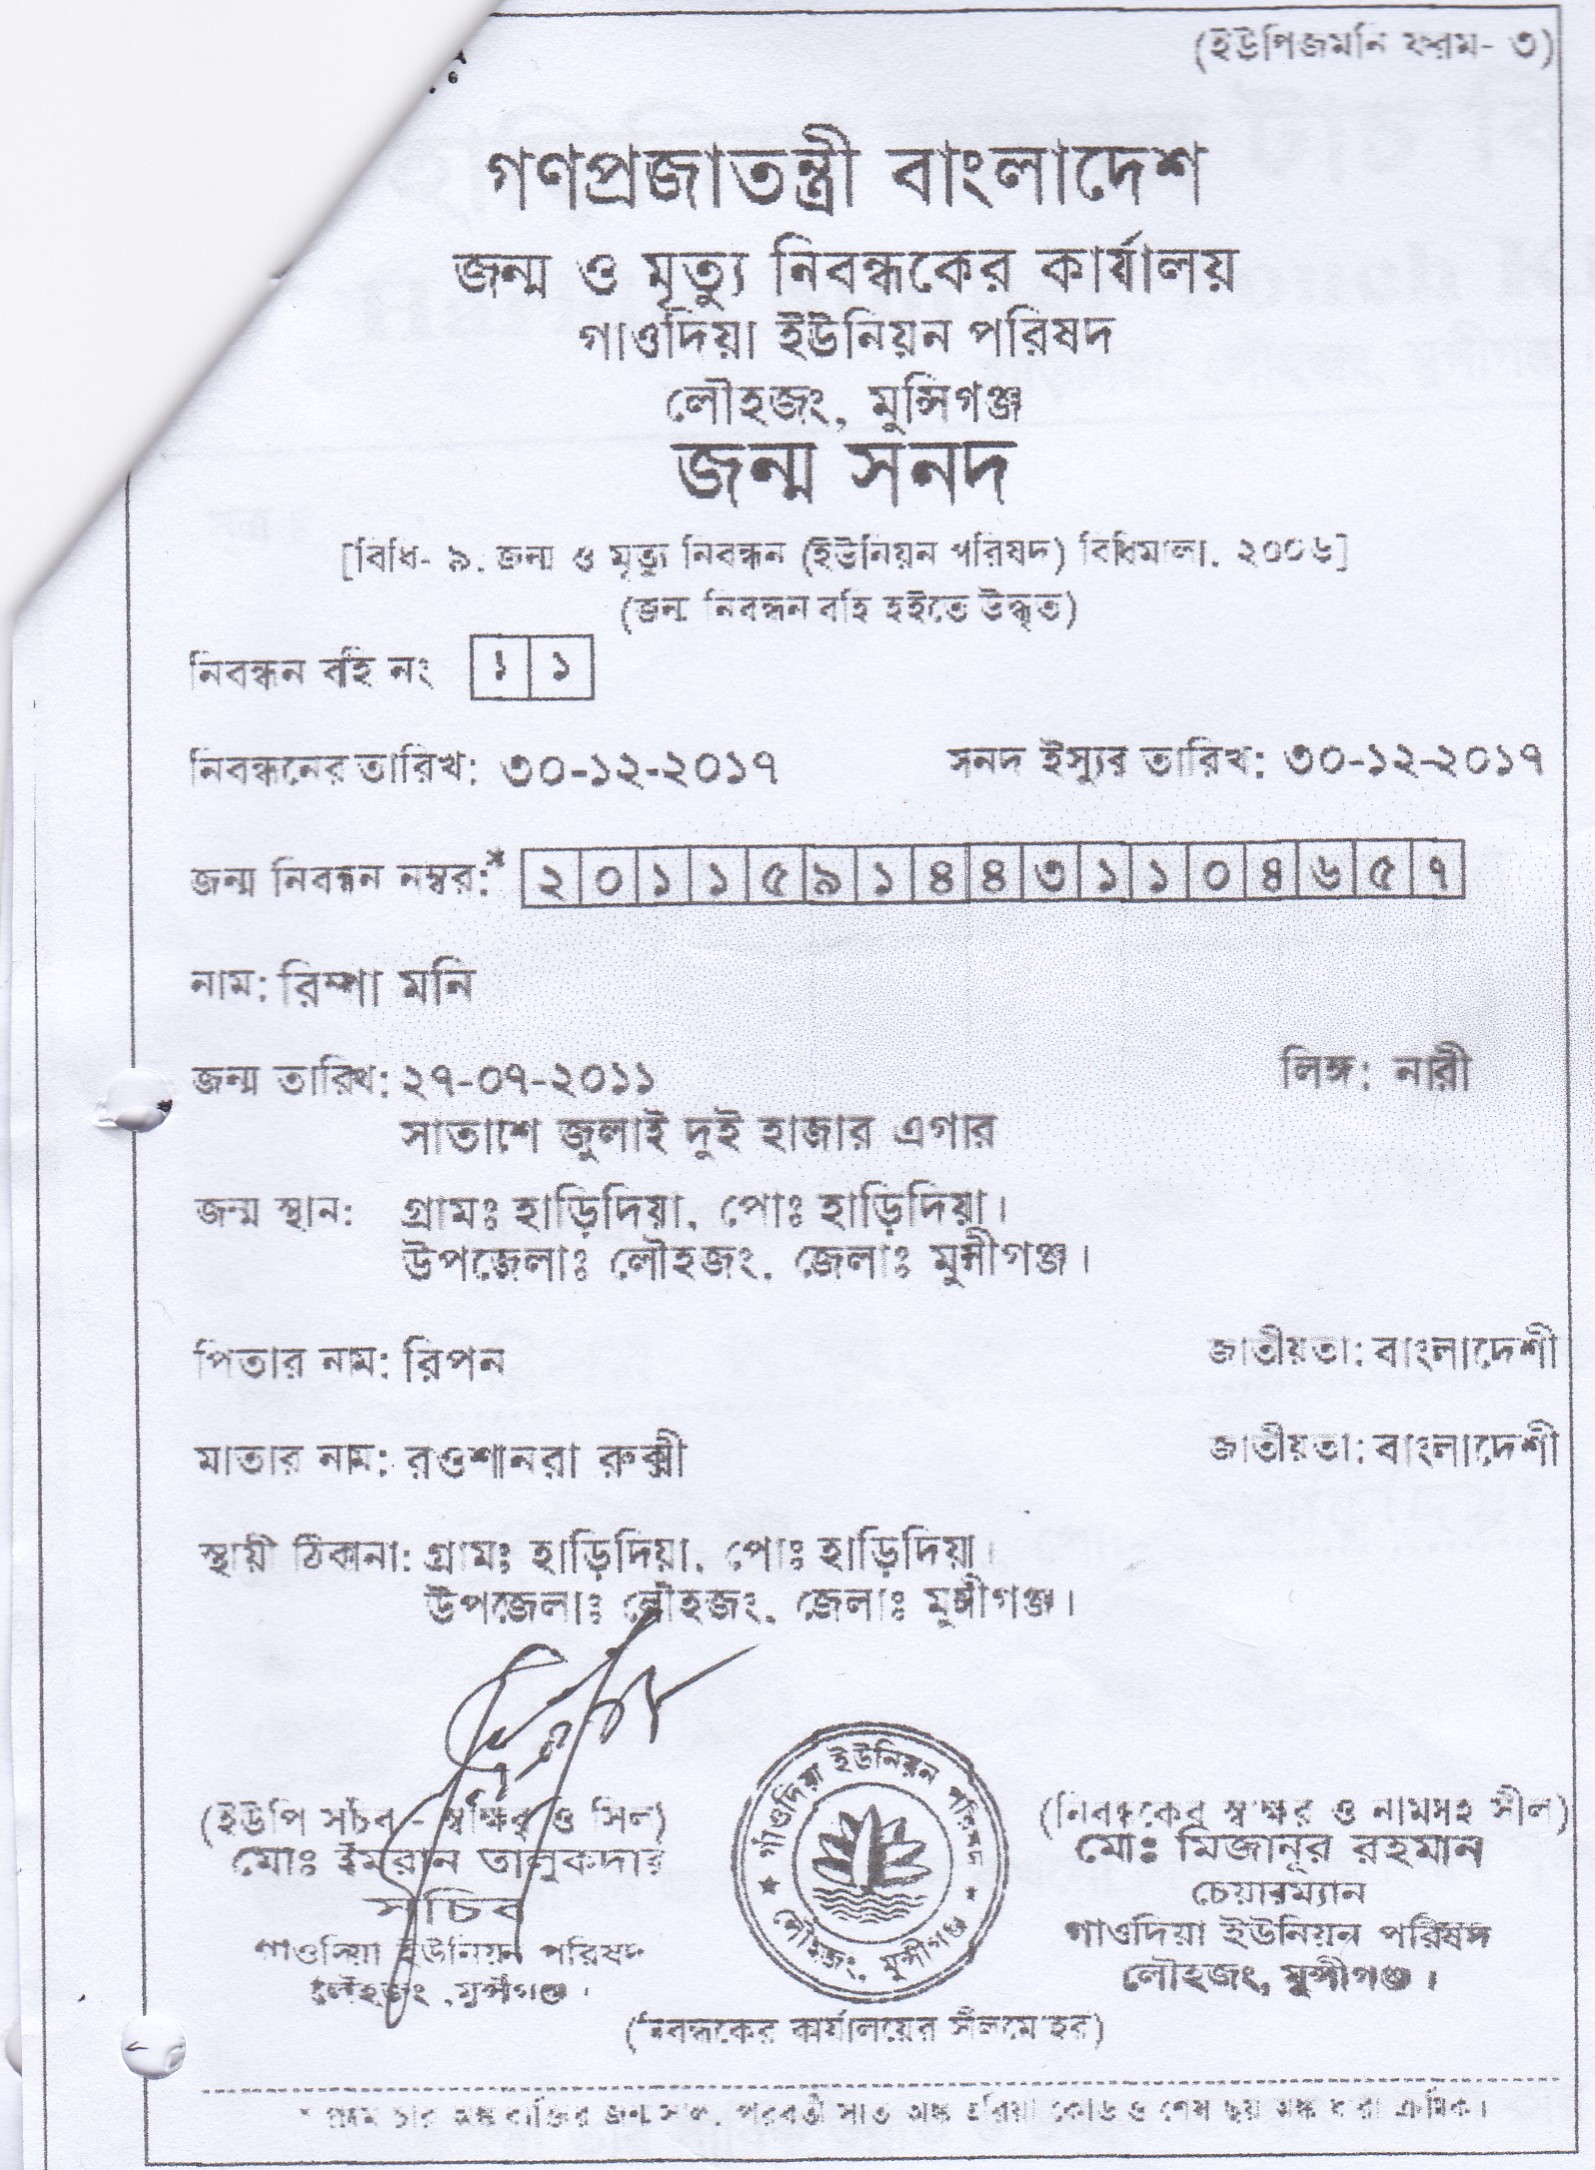 (ইউপিজমনি ফরম- ৩)
গণপ্রজাতন্ত্রী বাংলাদেশ
জন্ম ও মৃত্যু নিবন্ধকের কার্যালয়
গাওদিয়া ইউনিয়ন পরিষদ
লৌহজং, মুন্সিগঞ্জ
জন্ম সনদ
[বিধি- ৯, জন্ম ও মৃত্যু নিবন্ধন (ইউনিয়ন পরিষদ) বিধিমালা, ২০০৬]
(জন্ম নিবন্ধন বহি হইতে উদ্ধৃত)
নিবন্ধন বহি নং ১ ১
নিবন্ধনের তারিখ: ৩০-১২-২০১৭ সনদ ইস্যুর তারিখ: ৩০-১২-২০১৭
জন্ম নিবন্ধন নম্বর:* ২ ০ ১ ১ ৫ ৯ ১ ৪ ৪ ৩ ১ ১ ০ ৪ ৬ ৫ ৭
নাম: রিম্পা মনি
জন্ম তারিখ: ২৭-০৭-২০১১ লিঙ্গ: নারী
সাতাশে জুলাই দুই হাজার এগার
জন্ম স্থান: গ্রামঃ হাড়িদিয়া, পোঃ হাড়িদিয়া।
উপজেলাঃ লৌহজং, জেলাঃ মুন্সীগঞ্জ।
পিতার নাম: রিপন জাতীয়তা: বাংলাদেশী
মাতার নাম: রওশানরা রুক্সী জাতীয়তা: বাংলাদেশী
স্থায়ী ঠিকানা: গ্রামঃ হাড়িদিয়া, পোঃ হাড়িদিয়া।
উপজেলাঃ লৌহজং, জেলাঃ মুন্সীগঞ্জ।
গাঁওদিয়া ইউনিয়ন পরিষদ
লৌহজং, মুন্সীগঞ্জ
(ইউপি সচিব - স্বাক্ষর ও সিল)
মোঃ ইমরান তালুকদার
সচিব
গাওদিয়া ইউনিয়ন পরিষদ
লৌহজং, মুন্সীগঞ্জ।
(নিবন্ধকের স্বাক্ষর ও নামসহ সীল)
মোঃ মিজানুর রহমান
চেয়ারম্যান
গাওদিয়া ইউনিয়ন পরিষদ
লৌহজং, মুন্সীগঞ্জ।
(নিবন্ধকের কার্যালয়ের সীলমোহর)
* প্রথম চার অঙ্ক ব্যক্তির জন্ম সাল, পরবর্তী সাত অঙ্ক এরিয়া কোড ও শেষ ছয় অঙ্ক ধারা ক্রমিক।